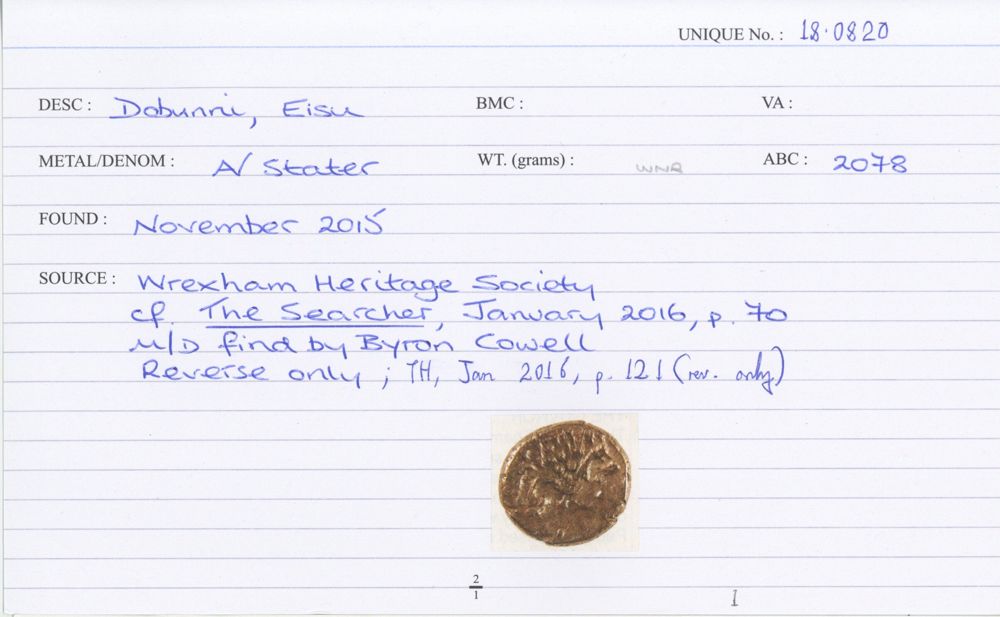 UNIQUE No. : 18.0820
DESC : Dobunni, Eisu BMC : VA :
METAL/DENOM : A/ Stater WT. (grams) : WNR ABC : 2078
FOUND : November 2015
SOURCE : Wrexham Heritage Society
cf. The Searcher, January 2016, p. 70
M/D find by Byron Cowell
Reverse only ; TH, Jan 2016, p. 121 (rev. only)
2/1
1